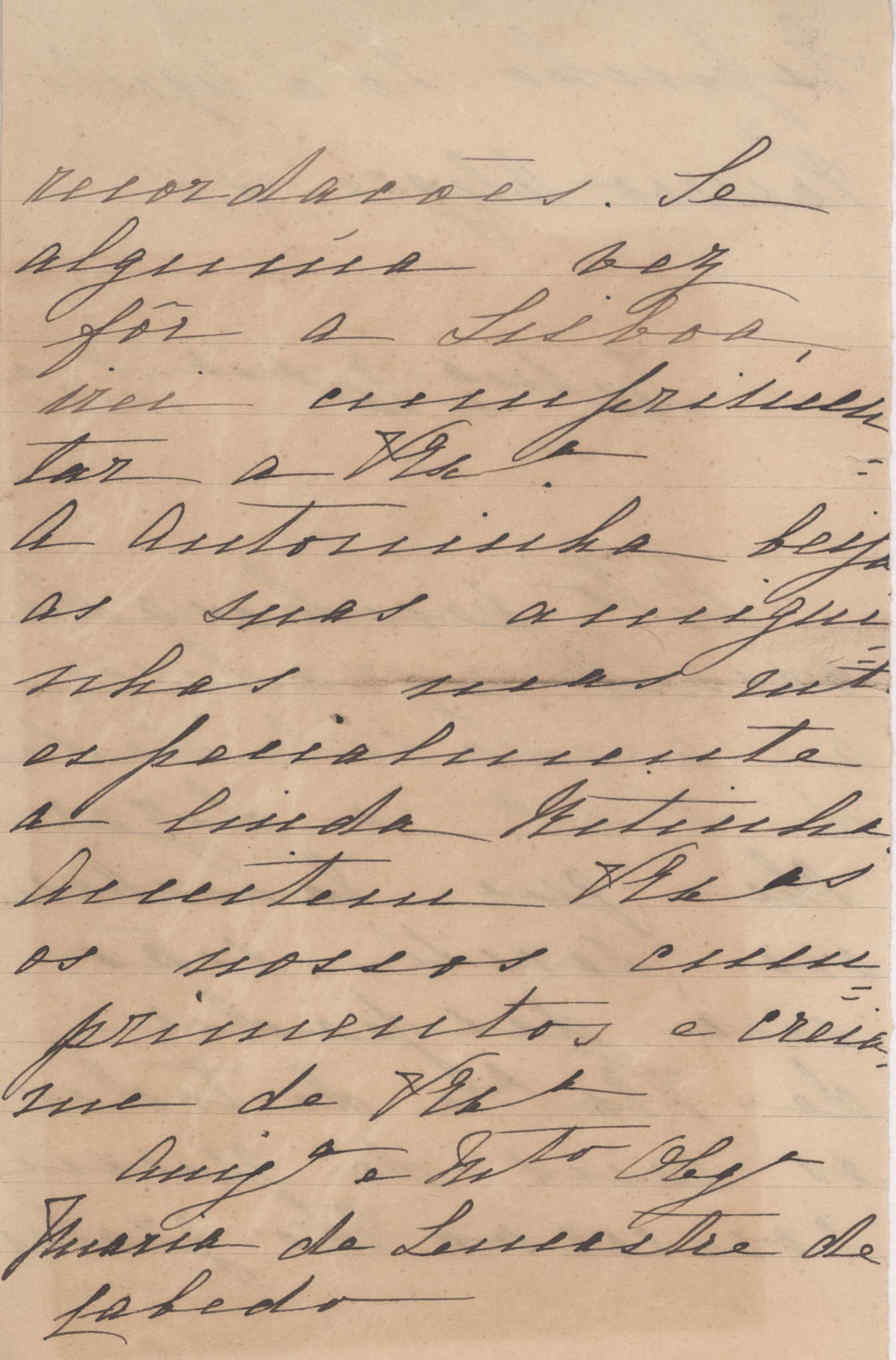 recordacões. Se
alguma vez
fôr a Lisboa,
irei cumprimen=
tar a VExª
A Antoninha beija
as suas amigui=
nhas mas mt.
especialmente
a linda Mitinha.
Acceitem VExas
os nossos cum=
primentos e creia-
me de VExª
Amigª e Mto Obgª
Maria de Lencastre de
Labedo